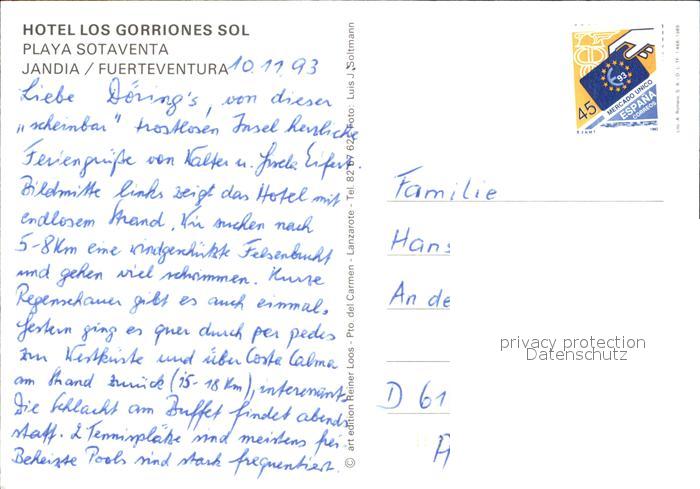 HOTEL LOS GORRIONES SOL
PLAYA SOTAVENTA
JANDIA / FUERTEVENTURA
10.11.93
Liebe Döring's, von dieser
„scheinbar" trostlosen Insel herzliche
Feriengrüße von Walter u. Gisela Eifert.
Bildmitte links zeigt das Hotel mit
endlosem Strand. Wir suchen nach
5-8 Km eine windgeschützte Felsenbucht
und gehen viel schwimmen. Kurze
Regenschauer gibt es auch einmal.
Gestern ging es quer durch per pedes
zur Westküste und über Costa Calma
am Strand zurück (15-18 Km), interessant.
Die Schlacht am Buffet findet abends
statt. 2 Tennisplätze sind meistens frei
Beheizte Pools sind stark frequentiert.
© art edition Reiner Loos - Pto. del Carmen - Lanzarote - Tel. 82 67 62 Foto: Luis J. Soltmann
45
93
MERCADO UNICO
ESPAÑA
CORREOS
Familie
Hans
An de
D 61
privacy protection
Datenschutz